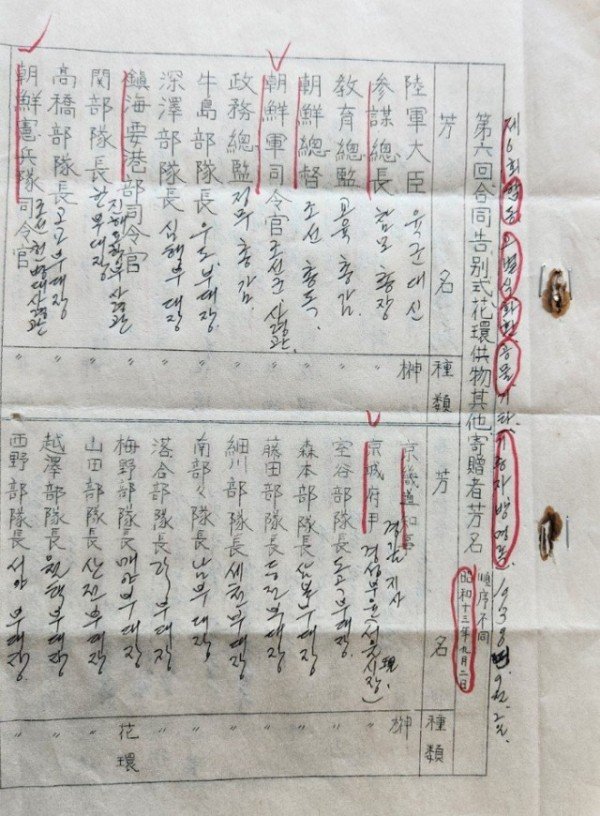 제6회 합동 고별식 화환 공물 기타 기증자 방명록. 1938년 9월 2일.
第六回合同告別式花環供物其他寄贈者芳名
順序不同
昭和十三年九月二日
芳名 種類
陸軍大臣 육군대신 榊
參謀總長 참모총장 〃
教育總監 교육총감. 〃
朝鮮總督 조선총독. 〃
朝鮮軍司令官 조선군사령관. 〃
政務總監 정무총감. 〃
牛島部隊長 우도부대장 〃
深澤部隊長 심택부대장 〃
鎭海要港部司令官 진해요항부사령관 〃
関部隊長 관부대장 〃
高橋部隊長 고교부대장 〃
朝鮮憲兵隊司令官 조선헌병대사령관 〃
芳名 種類
京畿道知事 지사 榊
京城府尹 경성부윤(現 서울시장) 〃
室谷部隊長 부대장 〃
森本部隊長 부대장 〃
藤田部隊長 등전부대장 〃
細川部隊長 세천부대장 〃
南部部隊長 남부대장 〃
落合部隊長 부대장 〃
梅野部隊長 매야부대장 花環
山田部隊長 산전부대장 〃
越澤部隊長 부대장 〃
西野部隊長 서야부대장 〃